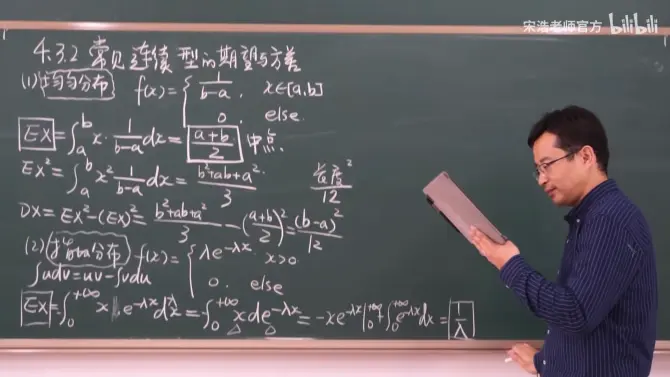 宋浩老师官方 bilibili
4.3.2 常见连续型的期望与方差
(1) 均匀分布 f(x)={ 1/(b-a), x∈[a,b]
0, else.
EX=∫_a^b x·1/(b-a)dx=(a+b)/2 中点.
EX²=∫_a^b x² 1/(b-a)dx=(b²+ab+a²)/3 长度²/12
DX=EX²-(EX)²=(b²+ab+a²)/3-((a+b)/2)²=(b-a)²/12
(2) 指数分布 f(x)={ λe^{-λx} x>0
0. else
∫udv=uv-∫vdu
EX=∫_0^{+∞} x e^{-λx}dλx=-∫_0^{+∞} x de^{-λx}=-xe^{-λx}|_0^{+∞}+∫_0^{+∞}e^{-λx}dx=1/λ